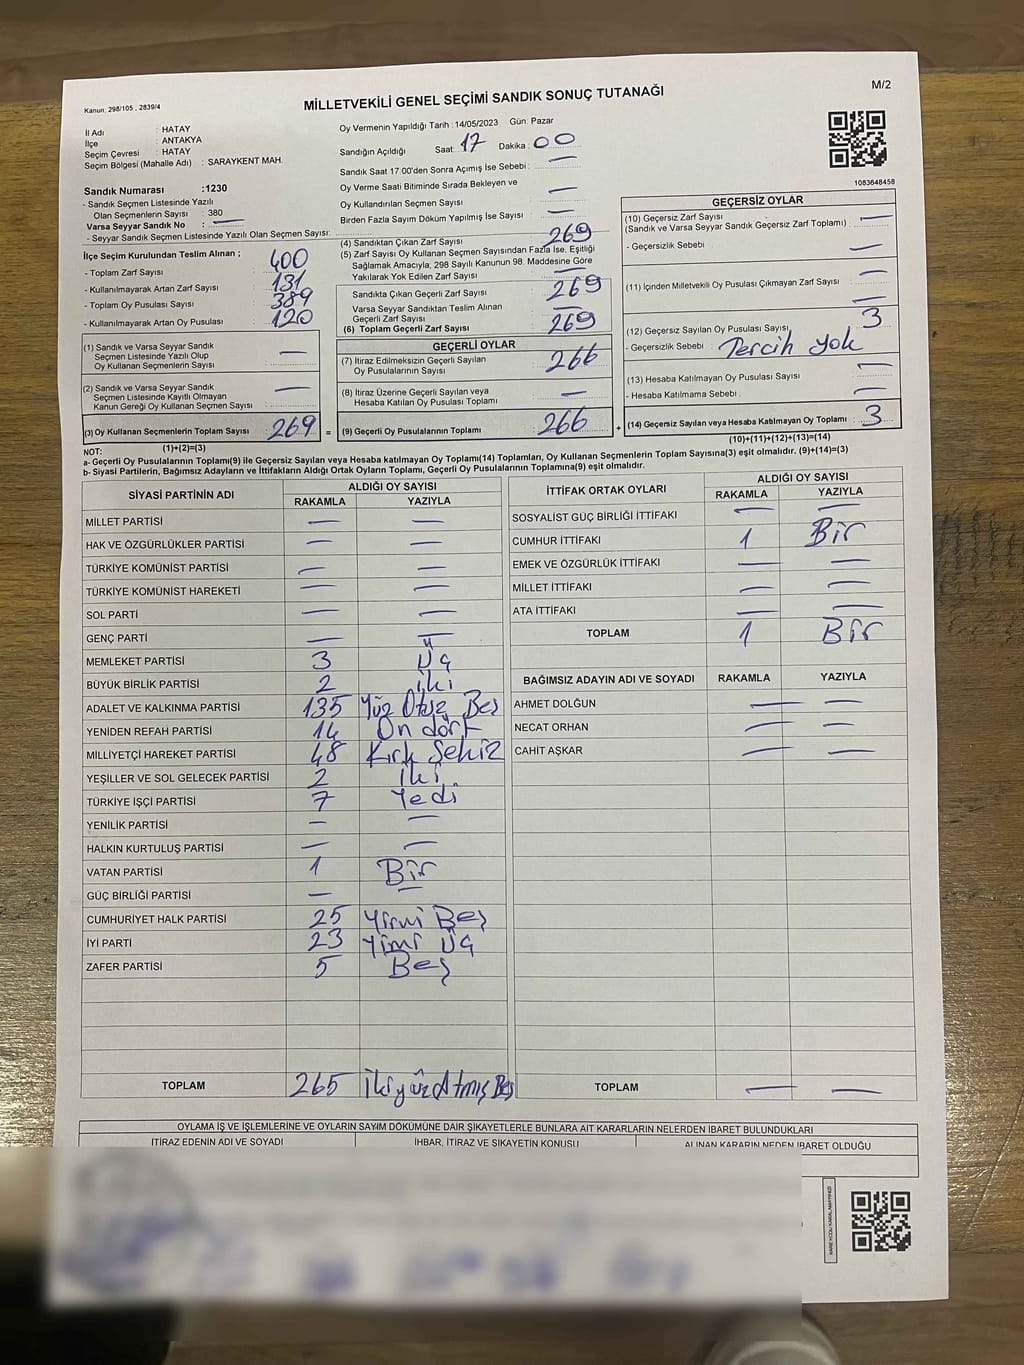 Kanun: 298/105 , 2839/4
MİLLETVEKİLİ GENEL SEÇİMİ SANDIK SONUÇ TUTANAĞI
M/2
İl Adı : HATAY
İlçe : ANTAKYA
Seçim Çevresi : HATAY
Seçim Bölgesi (Mahalle Adı) : SARAYKENT MAH.
Sandık Numarası :1230
- Sandık Seçmen Listesinde Yazılı
Olan Seçmenlerin Sayısı : 380
Varsa Seyyar Sandık No : —
- Seyyar Sandık Seçmen Listesinde Yazılı Olan Seçmen Sayısı:
İlçe Seçim Kurulundan Teslim Alınan ;
- Toplam Zarf Sayısı 400
- Kullanılmayarak Artan Zarf Sayısı 131
- Toplam Oy Pusulası Sayısı 389
- Kullanılmayarak Artan Oy Pusulası 120
(1) Sandık ve Varsa Seyyar Sandık
Seçmen Listesinde Yazılı Olup
Oy Kullanan Seçmenlerin Sayısı —
(2) Sandık ve Varsa Seyyar Sandık
Seçmen Listesinde Kayıtlı Olmayan
Kanun Gereği Oy Kullanan Seçmen Sayısı —
(3) Oy Kullanan Seçmenlerin Toplam Sayısı 269 =
(1)+(2)=(3)
Oy Vermenin Yapıldığı Tarih :14/05/2023 Gün: Pazar
Sandığın Açıldığı Saat: 17 Dakika : 00
Sandık Saat 17:00'den Sonra Açımış İse Sebebi : —
Oy Verme Saati Bitiminde Sırada Bekleyen ve
Oy Kullandırılan Seçmen Sayısı —
Birden Fazla Sayım Döküm Yapılmış İse Sayısı —
(4) Sandıktan Çıkan Zarf Sayısı 269
(5) Zarf Sayısı Oy Kullanan Seçmen Sayısından Fazla İse, Eşitliği
Sağlamak Amacıyla; 298 Sayılı Kanunun 98. Maddesine Göre
Yakılarak Yok Edilen Zarf Sayısı —
Sandıkta Çıkan Geçerli Zarf Sayısı 269
Varsa Seyyar Sandıktan Teslim Alınan
Geçerli Zarf Sayısı —
(6) Toplam Geçerli Zarf Sayısı 269
GEÇERLİ OYLAR
(7) İtiraz Edilmeksizin Geçerli Sayılan
Oy Pusulalarının Sayısı 266
(8) İtiraz Üzerine Geçerli Sayılan veya
Hesaba Katılan Oy Pusulası Toplamı —
(9) Geçerli Oy Pusulalarının Toplamı 266 +
1083648458
GEÇERSİZ OYLAR
(10) Geçersiz Zarf Sayısı
(Sandık ve Varsa Seyyar Sandık Geçersiz Zarf Toplamı) —
- Geçersizlik Sebebi —
(11) İçinden Milletvekili Oy Pusulası Çıkmayan Zarf Sayısı —
(12) Geçersiz Sayılan Oy Pusulası Sayısı 3
- Geçersizlik Sebebi : Tercih yok
(13) Hesaba Katılmayan Oy Pusulası Sayısı —
- Hesaba Katılmama Sebebi : —
(14) Geçersiz Sayılan veya Hesaba Katılmayan Oy Toplamı 3
(10)+(11)+(12)+(13)=(14)
NOT:
a- Geçerli Oy Pusulalarının Toplamı(9) ile Geçersiz Sayılan veya Hesaba katılmayan Oy Toplamı(14) Toplamları, Oy Kullanan Seçmenlerin Toplam Sayısına(3) eşit olmalıdır. (9)+(14)=(3)
b- Siyasi Partilerin, Bağımsız Adayların ve İttifakların Aldığı Ortak Oyların Toplamı, Geçerli Oy Pusulalarının Toplamına(9) eşit olmalıdır.
SİYASİ PARTİNİN ADI
ALDIĞI OY SAYISI
RAKAMLA YAZIYLA
MİLLET PARTİSİ — —
HAK VE ÖZGÜRLÜKLER PARTİSİ — —
TÜRKİYE KOMÜNİST PARTİSİ — —
TÜRKİYE KOMÜNİST HAREKETİ — —
SOL PARTİ — —
GENÇ PARTİ — —
MEMLEKET PARTİSİ 3 Üç
BÜYÜK BİRLİK PARTİSİ 2 iki
ADALET VE KALKINMA PARTİSİ 135 Yüz Otuz Beş
YENİDEN REFAH PARTİSİ 14 On dört
MİLLİYETÇİ HAREKET PARTİSİ 48 Kırk Sekiz
YEŞİLLER VE SOL GELECEK PARTİSİ 2 İki
TÜRKİYE İŞÇİ PARTİSİ 7 Yedi
YENİLİK PARTİSİ — —
HALKIN KURTULUŞ PARTİSİ — —
VATAN PARTİSİ 1 Bir
GÜÇ BİRLİĞİ PARTİSİ — —
CUMHURİYET HALK PARTİSİ 25 Yirmi Beş
İYİ PARTİ 23 Yimi Üç
ZAFER PARTİSİ 5 Beş
TOPLAM 265 İkiyüzAtmışBeş
İTTİFAK ORTAK OYLARI
ALDIĞI OY SAYISI
RAKAMLA YAZIYLA
SOSYALİST GÜÇ BİRLİĞİ İTTİFAKI — —
CUMHUR İTTİFAKI 1 Bir
EMEK VE ÖZGÜRLÜK İTTİFAKI — —
MİLLET İTTİFAKI — —
ATA İTTİFAKI — —
TOPLAM 1 Bir
BAĞIMSIZ ADAYIN ADI VE SOYADI RAKAMLA YAZIYLA
AHMET DOLĞUN — —
NECAT ORHAN — —
CAHİT AŞKAR — —
TOPLAM — —
OYLAMA İŞ VE İŞLEMLERİNE VE OYLARIN SAYIM DÖKÜMÜNE DAİR ŞİKAYETLERLE BUNLARA AİT KARARLARIN NELERDEN İBARET BULUNDUKLARI
İTİRAZ EDENİN ADI VE SOYADI İHBAR, İTİRAZ VE ŞİKAYETİN KONUSU ALINAN KARARIN NEDEN İBARET OLDUĞU